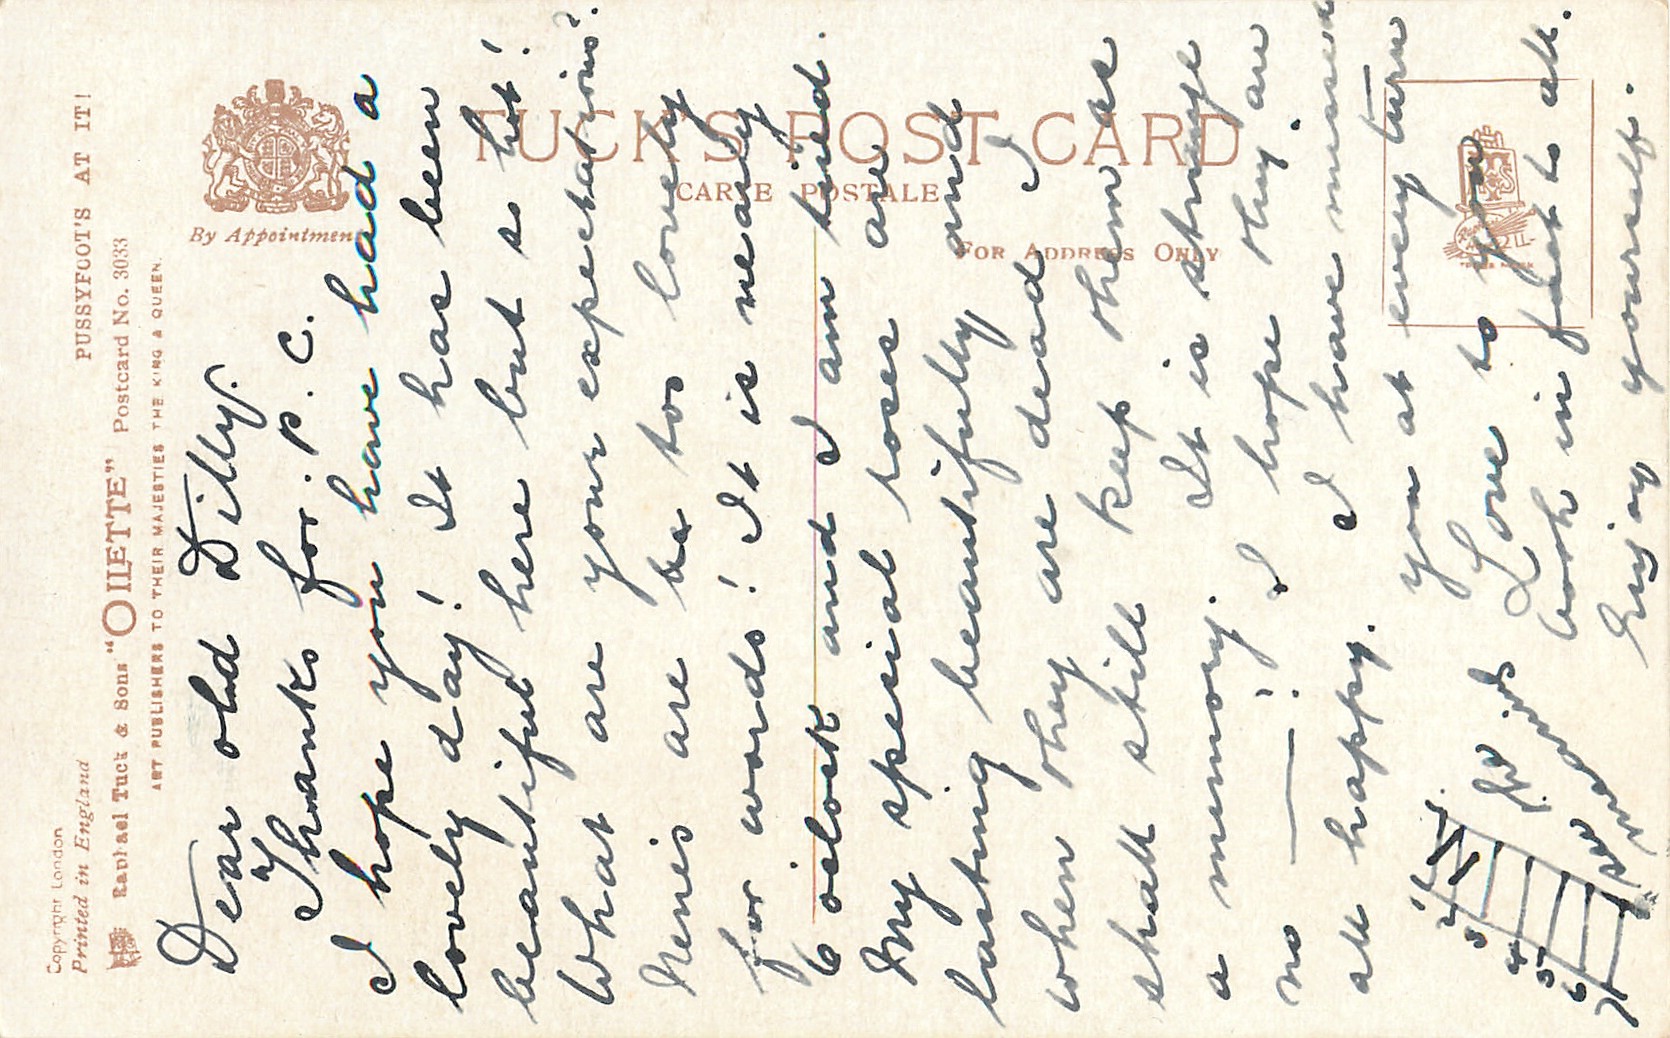 PUSSYFOOT'S AT IT!
Copyright London
Printed in England
Raphael Tuck & Sons' "OILETTE" Postcard No. 3033
ART PUBLISHERS TO THEIR MAJESTIES THE KING & QUEEN.
By Appointment
TUCK'S POST CARD
CARTE POSTALE
FOR ADDRESS ONLY
Dear old Dilly.
Thanks for. P. C.
I hope you have had a
lovely day! It has been
beautiful here but so hot!
What are your expectations?
Mine's are be too lovely
for words! It is nearly
6 oclock and I am tired.
My special roses are
lasting beautifully and
when they are dead I
shall still keep them as
a memory. It is strange
no —! I hope they are
all happy. I have missed
you at every turn
Love to you
both in fact to all.
Enjoy yourself.
N
1
2
3
4
5
6
7